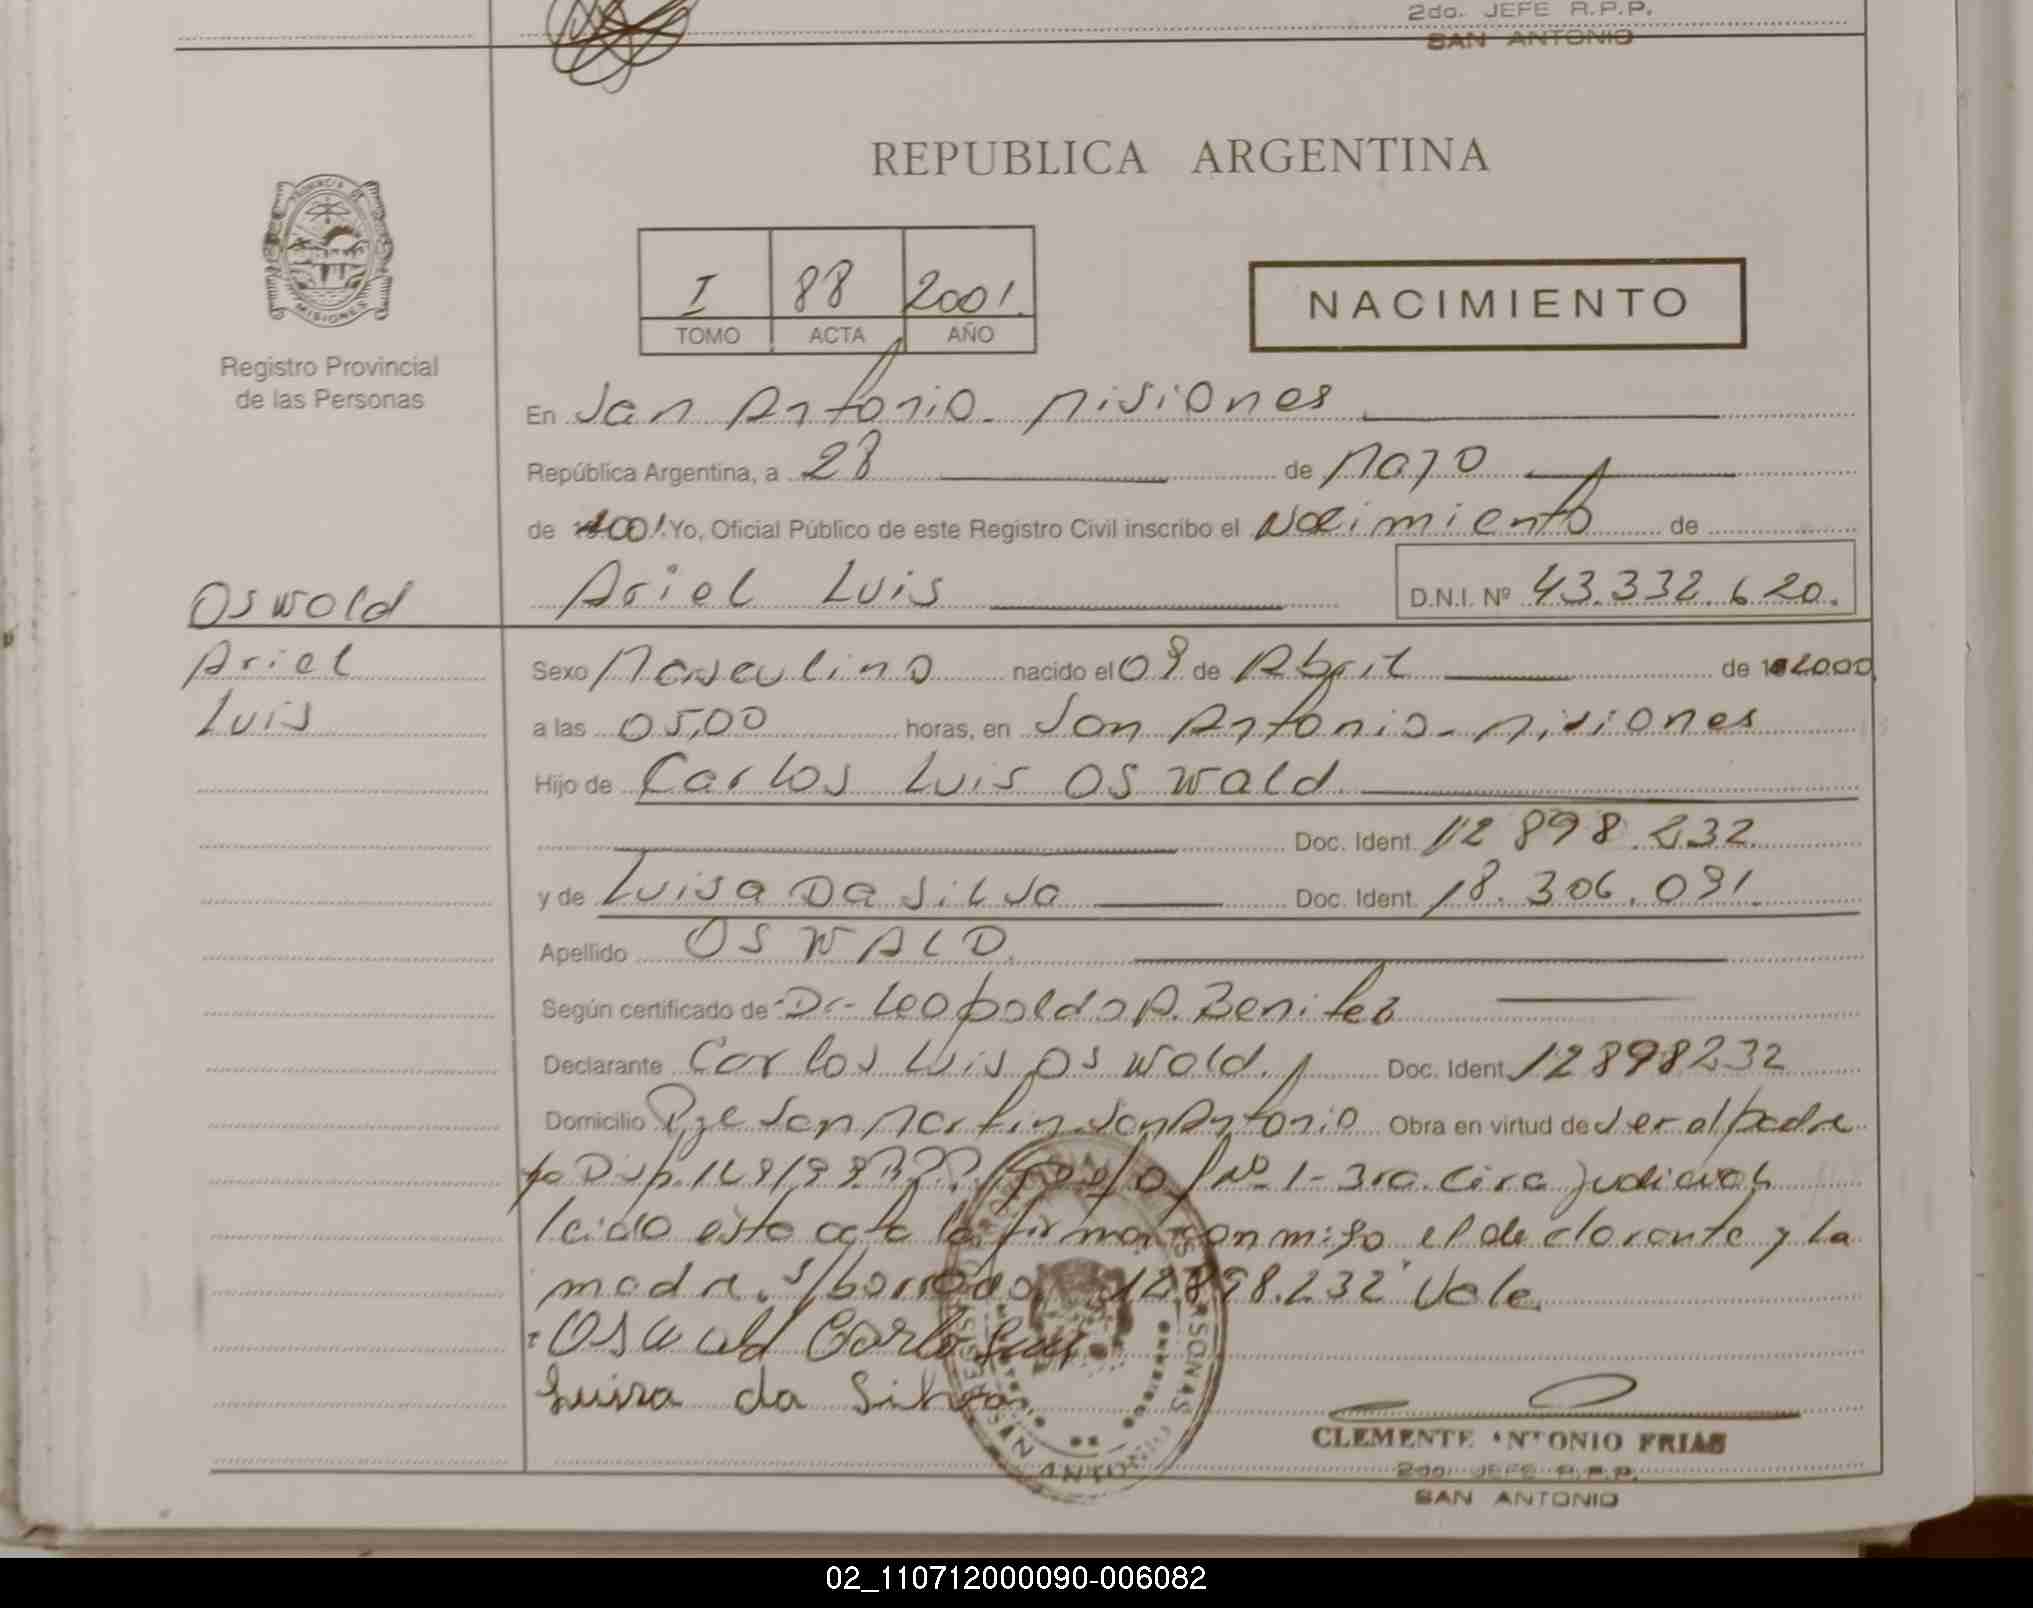 2do. JEFE R.P.P.
SAN ANTONIO
REPUBLICA ARGENTINA
I 88 2001.
TOMO ACTA AÑO
NACIMIENTO
PROVINCIA DE
MISIONES
Registro Provincial
de las Personas
En San Antonio - Misiones
República Argentina, a 28 de Mayo
de 001. Yo, Oficial Público de este Registro Civil inscribo el Nacimiento de
Ariel Luis D.N.I. Nº 43.332.620.
Oswald
Ariel
Luis
Sexo Masculino nacido el 09 de Abril de 2000
a las 05,00 horas, en San Antonio - Misiones
Hijo de Carlos Luis Oswald
Doc. Ident. 12 898.232.
y de Luisa Da Silva Doc. Ident. 18.306.091.
Apellido OSWALD.
Según certificado de Dr- Leopoldo A. Benitez
Declarante Carlos Luis Oswald. Doc. Ident. 12898232
Domicilio Pje San Martin San Antonio Obra en virtud de ser el padre
Nº 1 - 3ra. Circ Judicial
leido esta acta la firman conmigo el declarante y la
madre. s/borrado 12.898.232 Vale.
Oswald Carlos Luis
Luisa da Silva.
SAN ANTONIO
CLEMENTE ANTONIO FRIAS
2do. JEFE R.P.P.
SAN ANTONIO
02_110712000090-006082